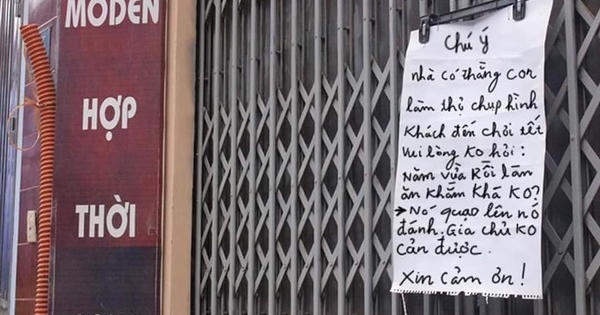 MODEN
HỢP
THỜI
Chú ý
nhà có thằng con
làm thợ chụp hình
Khách đến chơi tết
Vui lòng ko hỏi:
Năm vừa Rồi làm
ăn khấm Khá ko?
→ Nó quạo lên nó
đánh. Gia chủ ko
cản được.
Xin cảm ơn!